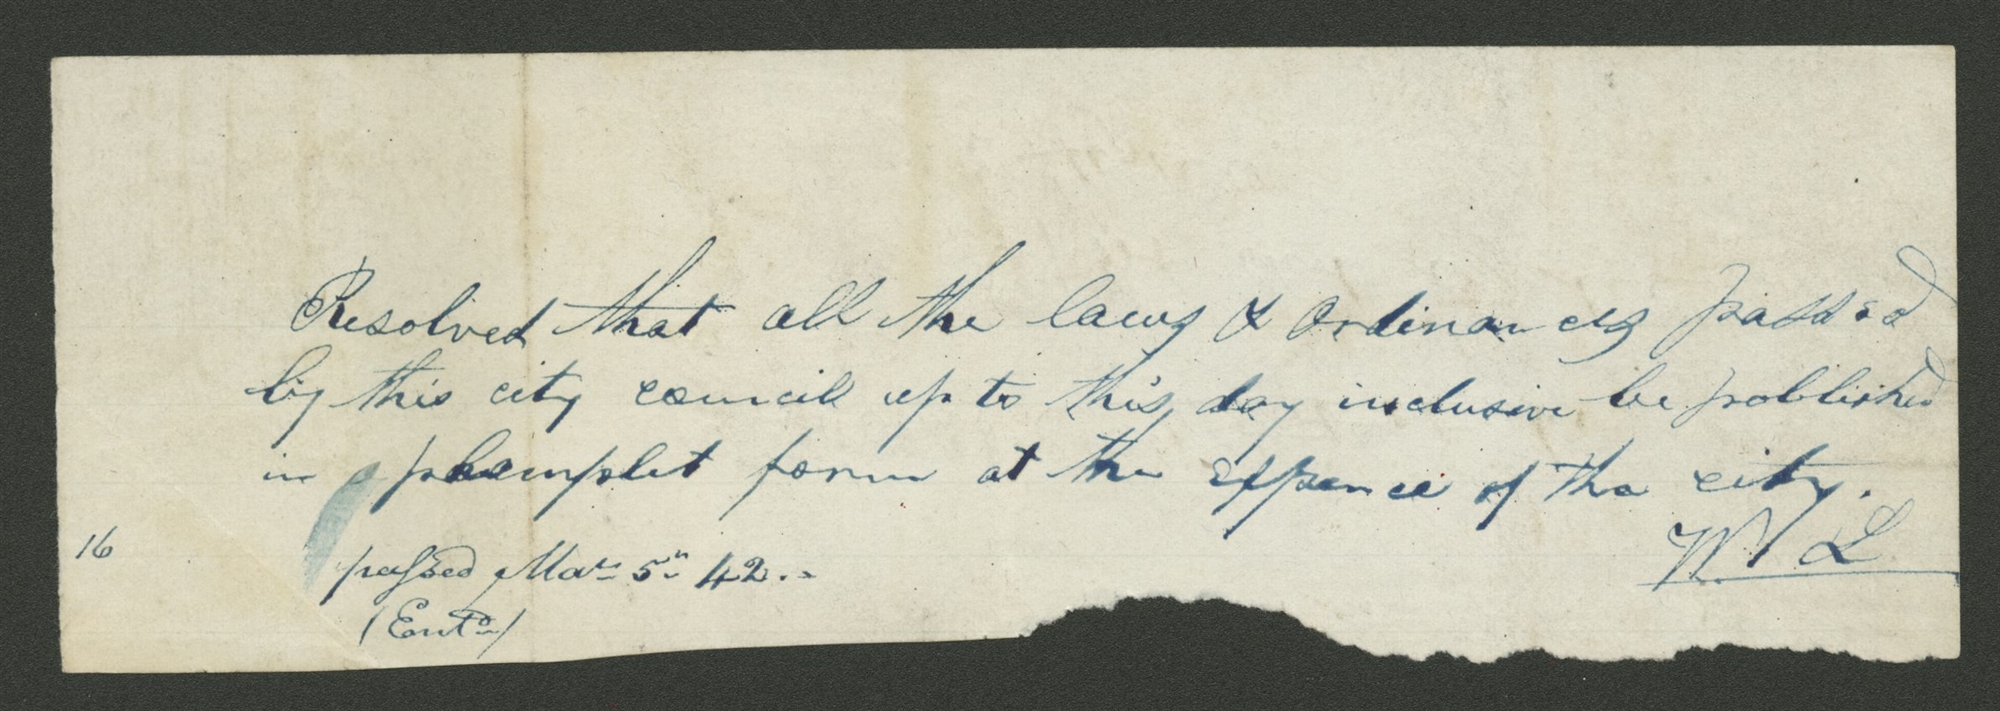 Resolved that all the laws & Ordinances passed
by this city council up to this day inclusive be poblished
in phamplet form at the expence of the city.
W L
16
passed Mar. 5th 42.
(Entd)